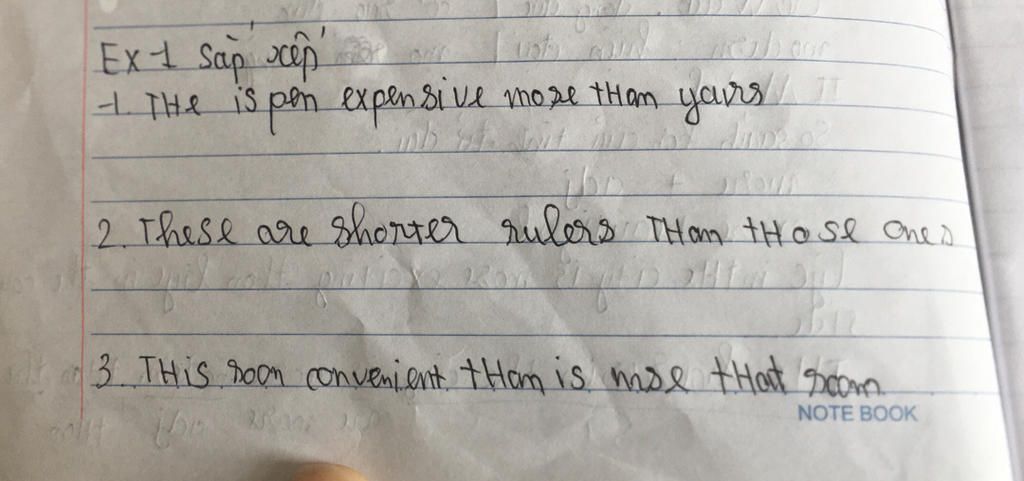 Ex 1 Sắp xếp
1. THe is pen expensive more tHan yours
2. These are shorter rulers THan tHose ones
3. THis roon convenient tHan is more tHat room
NOTE BOOK